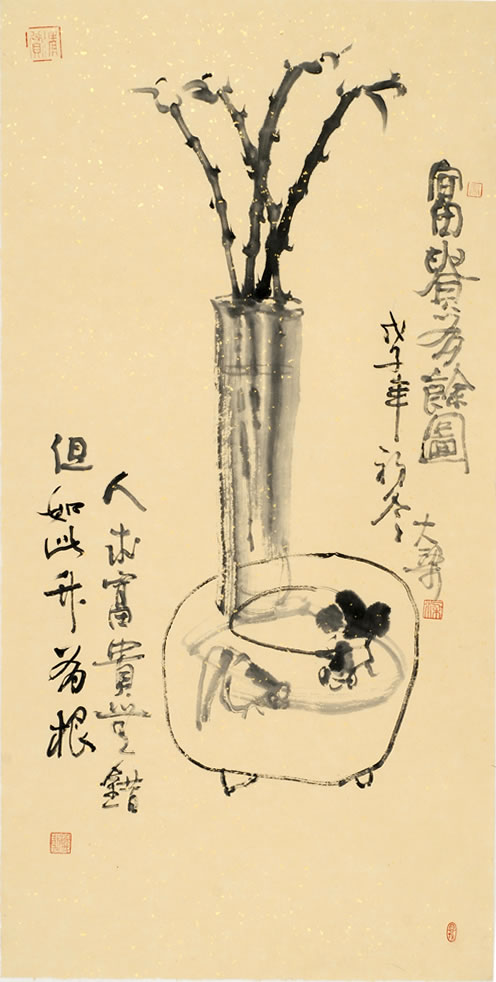 富貴有餘圖
戊子年初冬
大
人求富貴錯
但如此有根